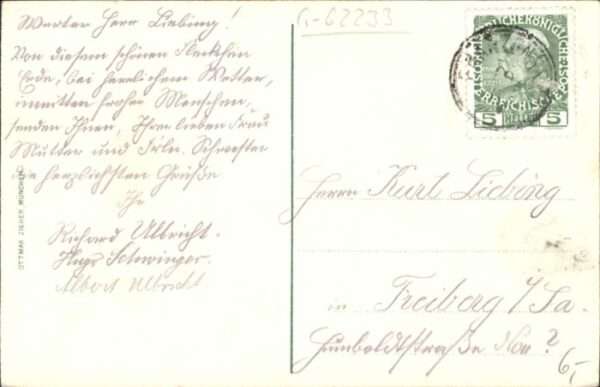 Werter Herr Liebing!
Von diesem schönen Fleckchen
Erde, bei herrlichem Wetter,
inmitten froher Menschen,
senden Ihnen, Ihrer lieben Frau
Mutter und Frln. Schwester
die herzlichsten Grüße
Ihr
Richard Ulbricht.
Hugo Schwinger.
Albert Ulbricht
OTTMAR ZIEHER, MÜNCHEN
5 HELLER 5
Herrn Kurt Liebing
in Freiberg i/Sa.
Humboldtstraße No ?
6,-